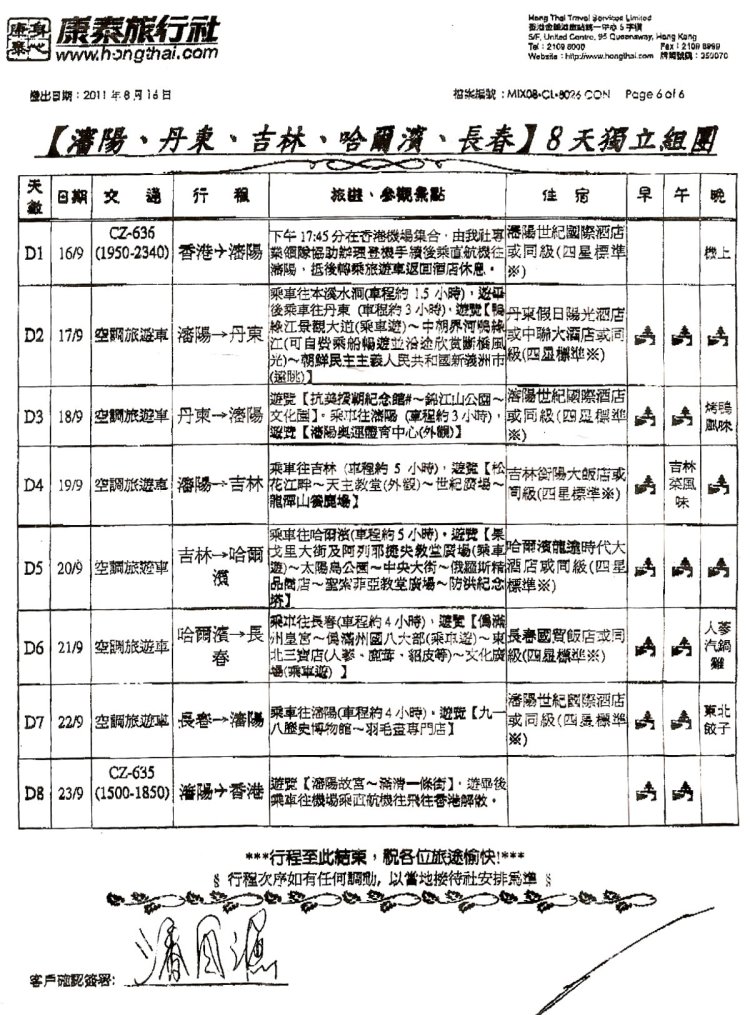 身心
康泰
康泰旅行社
www.hongthai.com
Hong Thai Travel Services Limited
5/F, United Centre, 95 Queensway, Hong Kong
Tel : 2109 8000 Fax : 2109 8999
Website : http://www.hongthai.com 牌照號碼 : 350070
發出日期：2011 年 8 月 16 日
檔案編號：MIX08-CL-8026 CON Page 6 of 6
【瀋陽、丹東、吉林、哈爾濱、長春】8天獨立組團
天數 日期 交通 行程 旅遊、參觀景點 住宿 早 午 晚
D1 16/9 CZ-636 (1950-2340) 香港→瀋陽
下午 17:45 分在香港機場集合，由我社專
業領隊協助辦理登機手續後乘直航機往
瀋陽，抵後轉乘旅遊車返回酒店休息。
瀋陽世紀國際酒店
或同級(四星標準
※)
機上
D2 17/9 空調旅遊車 瀋陽→丹東
乘車往本溪水洞(車程約 1.5 小時)，遊畢
後乘車往丹東 (車程約 3 小時)，遊覽【鴨
綠江景觀大道(乘車遊)～中朝界河鴨綠
江(可自費乘船暢遊並沿途欣賞斷橋風
光)～朝鮮民主主義人民共和國新義洲市
(遠眺)】
丹東假日陽光酒店
或中聯大酒店或同
級(四星標準※)
D3 18/9 空調旅遊車 丹東→瀋陽
遊覽【抗美援朝紀念館#～錦江山公園～
文化園】。乘車往瀋陽 (車程約 3 小時)，
遊覽【瀋陽奧運體育中心(外觀)】
瀋陽世紀國際酒店
或同級(四星標準
※)
烤鴨
風味
D4 19/9 空調旅遊車 瀋陽→吉林
乘車往吉林 (車程約 5 小時)，遊覽【松
花江畔～天主教堂(外觀)～世紀廣場～
龍潭山養鹿場】
吉林衡陽大飯店或
同級(四星標準※)
吉林
菜風
味
D5 20/9 空調旅遊車 吉林→哈爾
濱
乘車往哈爾濱(車程約 5 小時)，遊覽【果
戈里大街及阿列耶捷夫教堂廣場(乘車
遊)～太陽島公園～中央大街～俄羅斯精
品商店～聖索菲亞教堂廣場～防洪紀念
塔】
哈爾濱龍遠時代大
酒店或同級(四星
標準※)
D6 21/9 空調旅遊車 哈爾濱→長
春
乘車往長春(車程約 4 小時)，遊覽【偽滿
州皇宮～偽滿州國八大部(乘車遊)～東
北三寶店(人蔘、鹿茸、貂皮等)～文化廣
場(乘車遊) 】
長春國貿飯店或同
級(四星標準※)
人蔘
汽鍋
雞
D7 22/9 空調旅遊車 長春→瀋陽
乘車往瀋陽(車程約 4 小時)，遊覽【九一
八歷史博物館～羽毛畫專門店】
瀋陽世紀國際酒店
或同級(四星標準
※)
東北
餃子
D8 23/9 CZ-635 (1500-1850) 瀋陽→香港
遊覽【瀋陽故宮～滿清一條街】，遊畢後
乘車往機場乘直航機往飛往香港解散。
***行程至此結束，祝各位旅途愉快!***
§ 行程次序如有任何調動, 以當地接待社安排為準 §
客戶確認簽署: